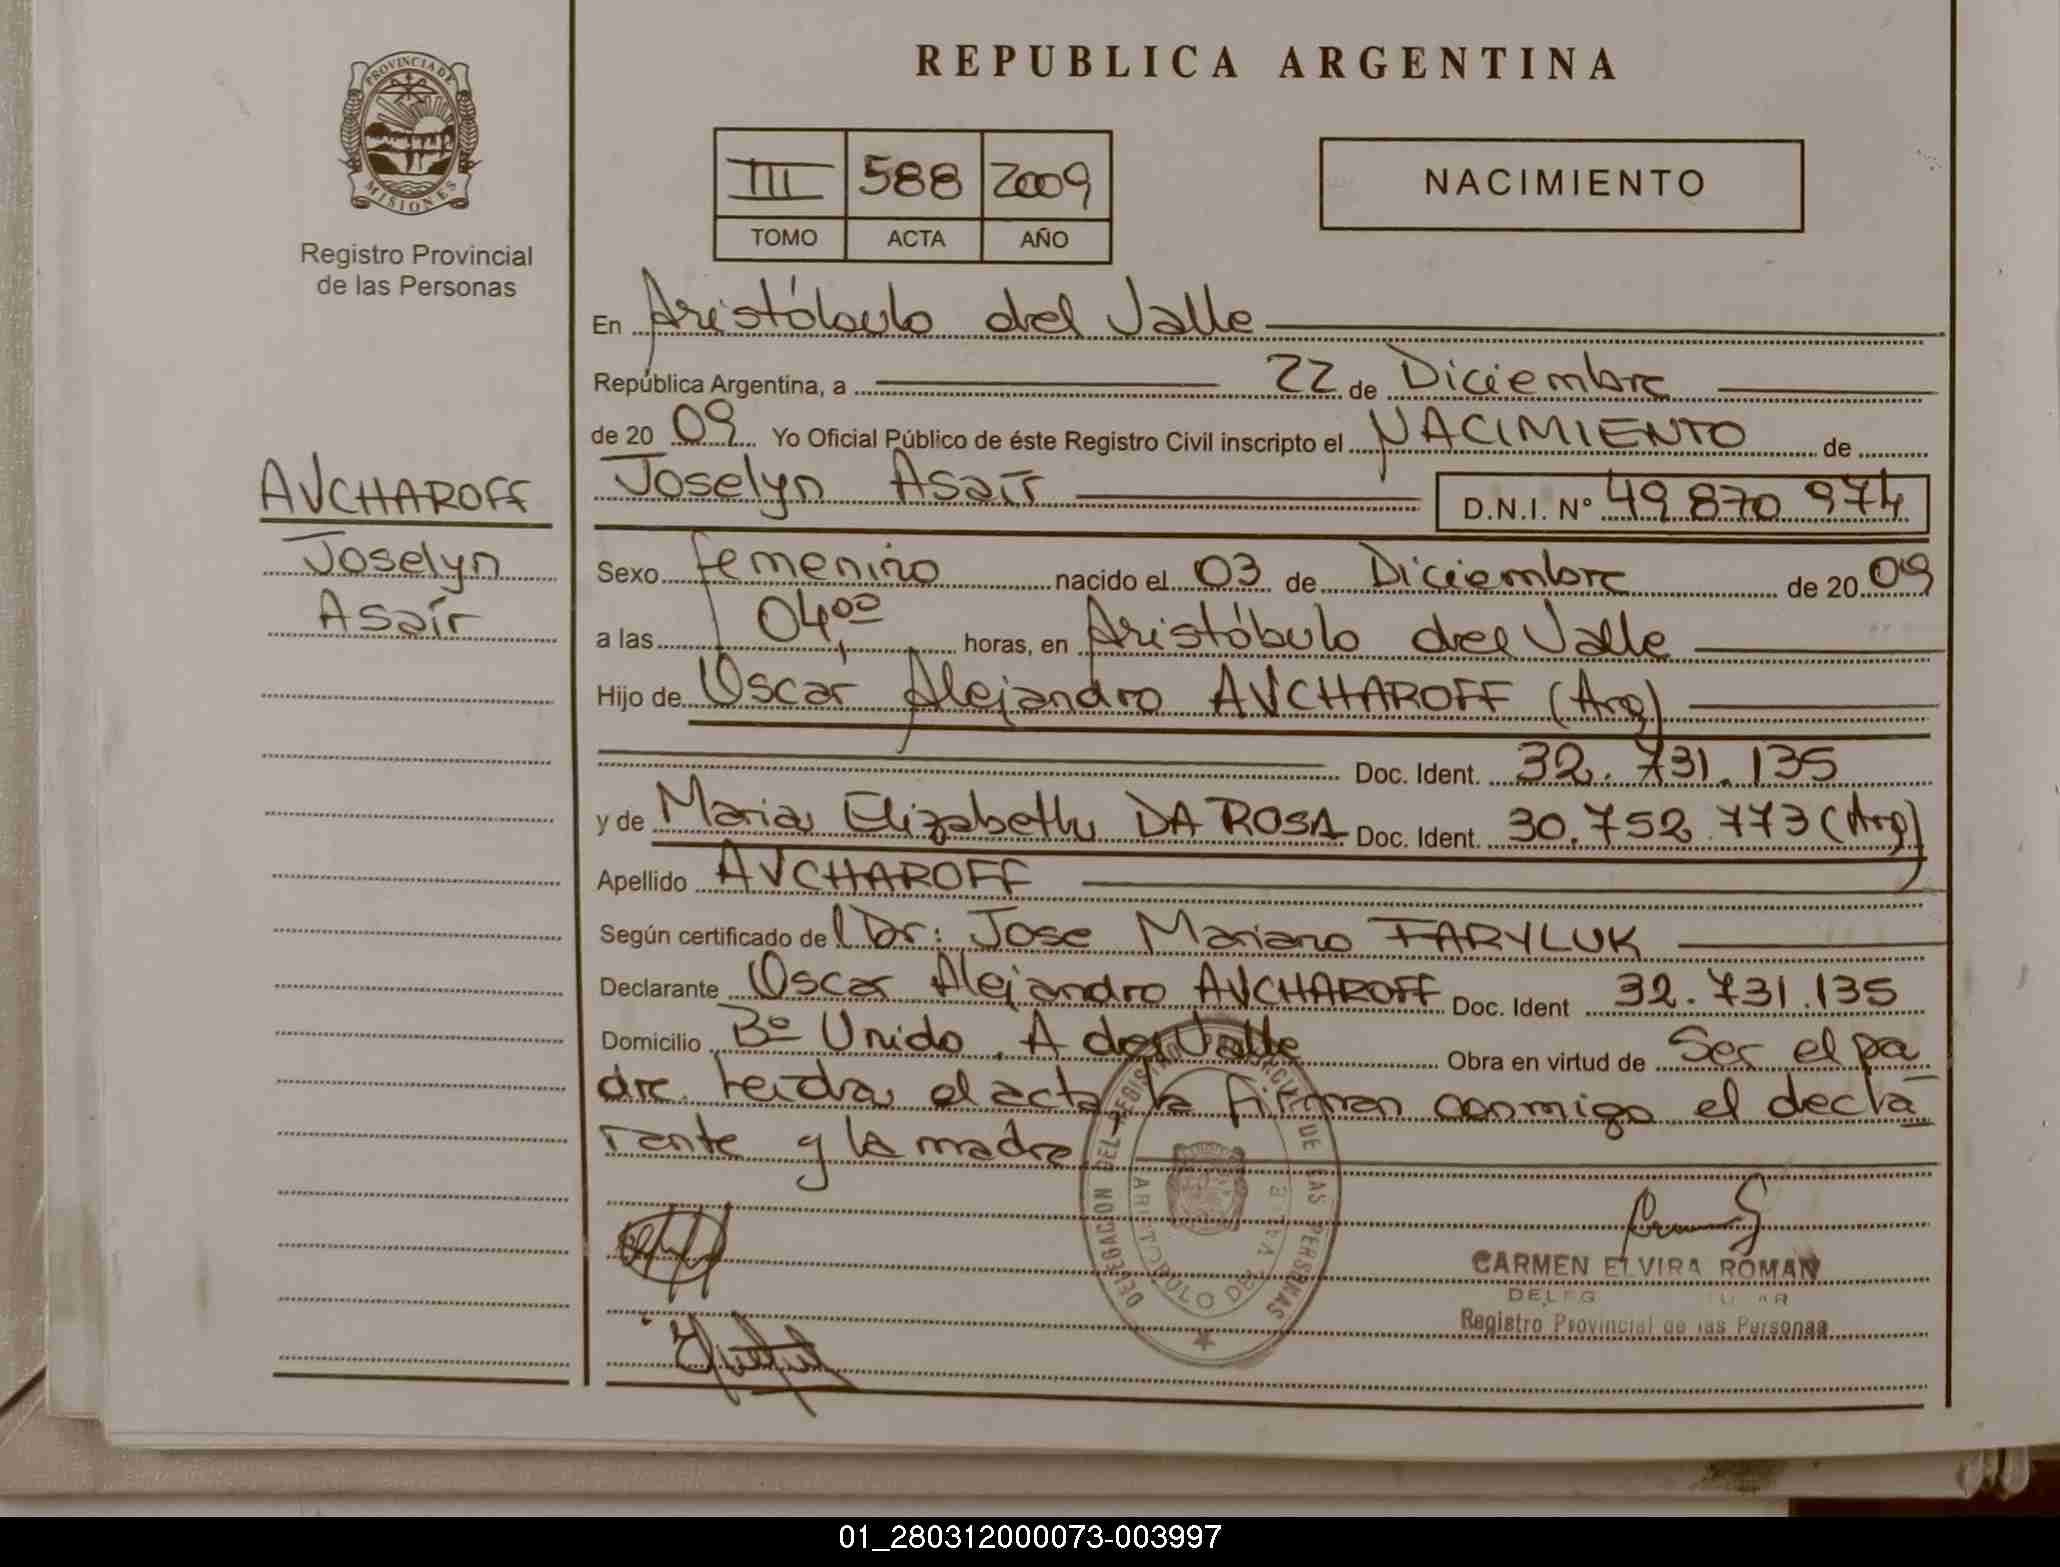 REPUBLICA ARGENTINA
PROVINCIA DE
MISIONES
Registro Provincial
de las Personas
III 588 2009
TOMO ACTA AÑO
NACIMIENTO
En Aristóbulo del Valle
República Argentina, a 22 de Diciembre
de 20 09 Yo Oficial Público de éste Registro Civil inscripto el NACIMIENTO de
AVCHAROFF
Joselyn
Asaír
Joselyn Asaír D.N.I. Nº 49 870 974
Sexo femenino nacido el 03 de Diciembre de 20 09
a las 04,00 horas, en Aristóbulo del Valle
Hijo de Oscar Alejandro AVCHAROFF (Arg)
Doc. Ident. 32.731.135
y de Maria Elizabeth DA ROSA Doc. Ident. 30.752.773 (Arg)
Apellido AVCHAROFF
Según certificado del Dr: Jose Mariano FARYLUK
Declarante Oscar Alejandro AVCHAROFF Doc. Ident 32.731.135
Domicilio Bº Unido. A del Valle Obra en virtud de Ser el pa
dre. Leida el acta, la firman conmigo el decla
rante y la madre
DELEGACION DEL REGISTRO PROVINCIAL DE LAS PERSONAS
ARISTOBULO DEL VALLE
CARMEN ELVIRA ROMAN
Registro Provincial de las Personas
01_280312000073-003997